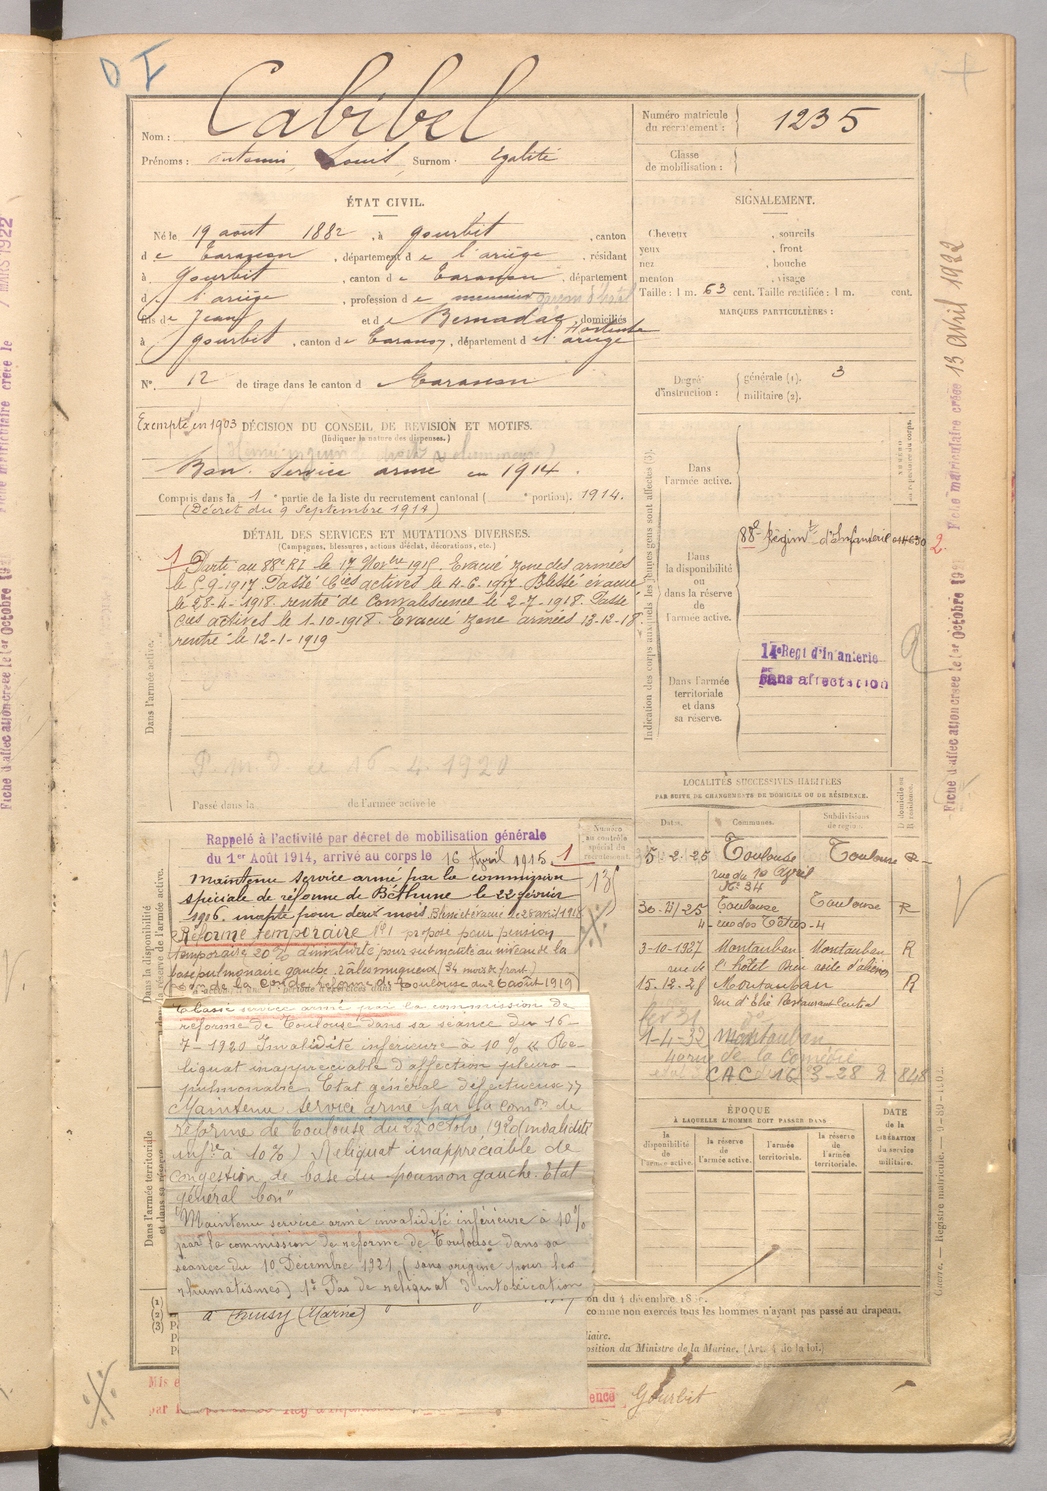 D I
Nom : Cabibel
Numéro matricule du recrutement : 1235
Prénoms : Louis, Surnom : Egalité
Classe de mobilisation :
ÉTAT CIVIL.
Né le 19 août 1882, à Gourbit, canton
de Tarascon, département de l'ariège, résidant
à Gourbit, canton de Tarascon, département
de l'ariège, profession de meunier
fils de Jean et de Bernadac Hortense, domiciliés
à Gourbit, canton de Tarascon, département de l'ariège
N°. 12 de tirage dans le canton de Tarascon
SIGNALEMENT.
Cheveux , sourcils
yeux , front
nez , bouche
menton , visage
Taille : 1 m. 63 cent. Taille rectifiée : 1 m. cent.
MARQUES PARTICULIÈRES :
Degré d'instruction : générale (1). 3
militaire (2).
Exempté en 1903 DÉCISION DU CONSEIL DE REVISION ET MOTIFS.
(Indiquer la nature des dispenses.)
Bon Service armé en 1914.
Compris dans la 1e partie de la liste du recrutement cantonal ( e portion). 1914.
(Décret du 9 Septembre 1914)
DÉTAIL DES SERVICES ET MUTATIONS DIVERSES.
(Campagnes, blessures, actions d'éclat, décorations, etc.)
Dans l'armée active.
1 Parti au 88e RI le 17 Novbre 1915. Evacué zone des armées
le 5-9-1917 Passé Cies actives le 4-6-1917. Blessé évacué
le 28-4-1918. rentré de Convalescence le 2-7-1918. Passé
Cies actives le 1-10-1918. Evacué zone armées 13-12-18.
rentré le 12-1-1919
16-4-1920
Passé dans la de l'armée active le
Indication des corps auxquels les jeunes gens sont affectés (3).
Dans l'armée active.
Dans la disponibilité ou dans la réserve de l'armée active.
88e Régimt d'Infanterie
2.
Dans l'armée territoriale et dans sa réserve.
14e Regt d'Infanterie
Sans affectation
Fiche matriculaire créée 13 avril 1922
Fiche d'affectation créée le 1er Octobre
LOCALITÉS SUCCESSIVES HABITÉES
PAR SUITE DE CHANGEMENTS DE DOMICILE OU DE RÉSIDENCE.
Dates. Communes. Subdivisions de région. D domicile ou R résidence.
5-2-25 Toulouse Toulouse R
rue du 10 Avril
N° 34
30-11/25 Toulouse Toulouse R
4
3-10-1927 Montauban Montauban R
rue de l'hôtel Dieu asile d'aliénés
15-12-28 Montauban R
1-4-32 Montauban
40 rue de la Comédie
CAC 16 3-28 848
Numéro au contrôle spécial du recrutement.
Rappelé à l'activité par décret de mobilisation générale
du 1er Août 1914, arrivé au corps le 16 Avril 1915. 1
Maintenu service armé par la commission
spéciale de réforme de Béthune le 22 février
1916. inapte pour deux mois.
Réforme temporaire N°1 proposé pour pension
temporaire 20% d'invalidité pour submatité au niveau de la
base pulmonaire gauche. râles muqueux (34 mois de front)
(Com de réforme de Toulouse du 2 août 1919)
Classé service armé par la commission de
réforme de Toulouse dans sa séance du 16-
7-1920 Invalidité inférieure à 10% « Re-
liquat inappréciable d'affection pleuro-
pulmonaire. Etat général défectueux »
Maintenu service armé par la comon de
réforme de Toulouse du 23 octobre 1920 (invalidité
infre à 10%) Reliquat inappréciable de
congestion de base du poumon gauche. Etat
général bon"
Maintenu service armé invalidité inférieure à 10%
par la commission de réforme de Toulouse dans sa
séance du 10 Décembre 1921 (sans origine pour les
rhumatismes) 1° Pas de reliquat d'intoxication
Dans la disponibilité
Dans l'armée territoriale
ÉPOQUE
À LAQUELLE L'HOMME DOIT PASSER DANS
la disponibilité de l'armée active. la réserve de l'armée active. l'armée territoriale. la réserve de l'armée territoriale.
DATE de la LIBÉRATION du service militaire.
on du 4 décembre 18
comme non exercés tous les hommes n'ayant pas passé au drapeau.
position du Ministre de la Marine. (Art. 4 de la loi.)
(Marne)
Gourbit
Guerre. — Registre matricule.